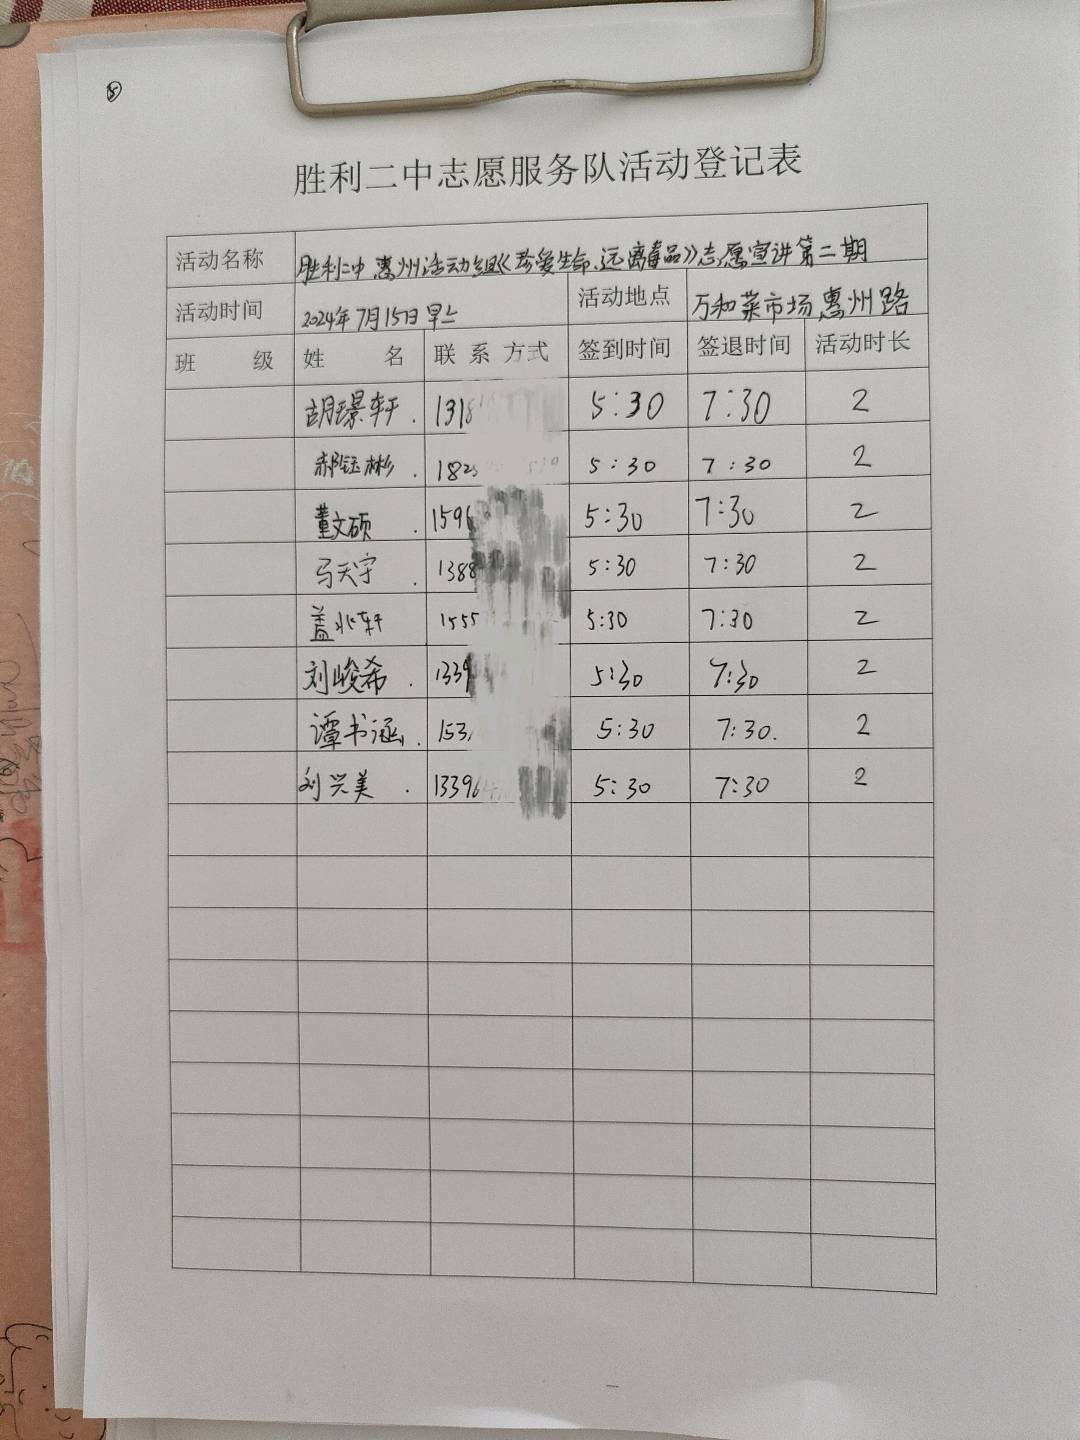 ⑤
胜利二中志愿服务队活动登记表
活动名称 胜利二中惠州活动组《珍爱生命、远离毒品》志愿宣讲第二期
活动时间 2024年7月15日早上 活动地点 万和菜市场惠州路
班 级 姓 名 联系方式 签到时间 签退时间 活动时长
胡璟轩 . 131 5:30 7:30 2
郝钰彬 . 182 5:30 7:30 2
董文硕 . 159 5:30 7:30 2
马天宇 . 138 5:30 7:30 2
盖兆轩 155 5:30 7:30 2
刘峻希 . 133 5:30 7:30 2
谭书涵 . 153 5:30 7:30. 2
刘兴美 . 1339 5:30 7:30 2